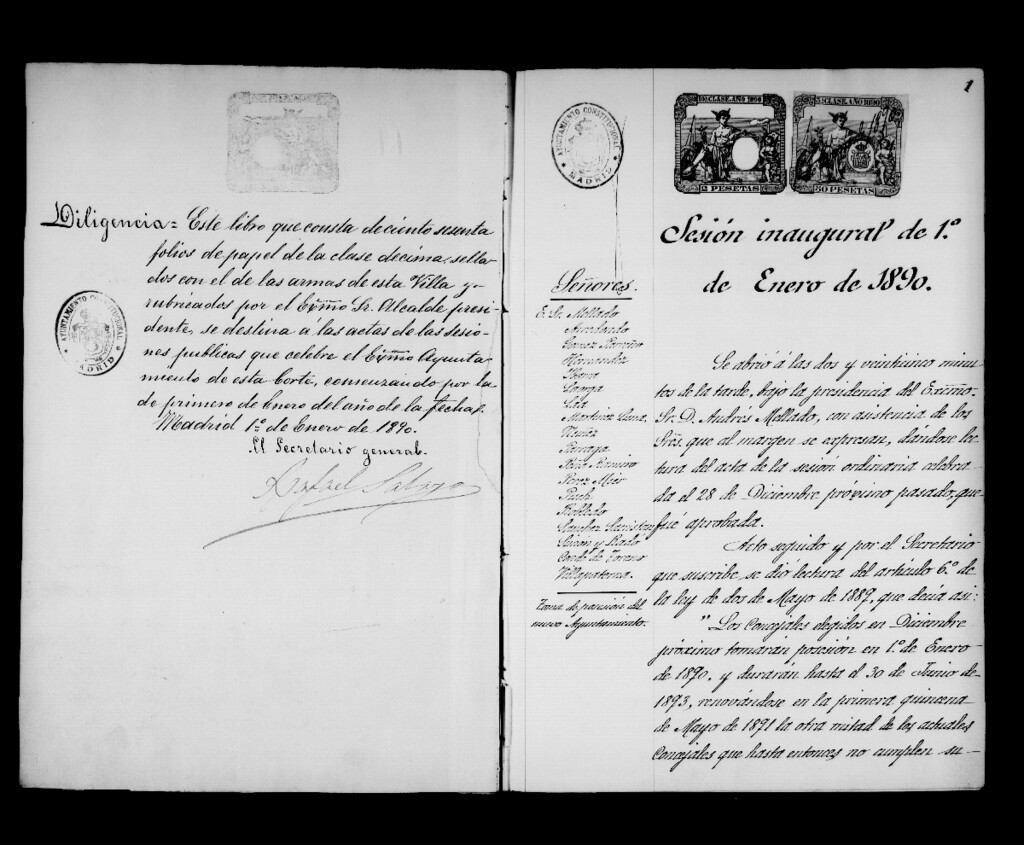 Diligencia= Este libro que consta de ciento sesenta
folios de papel de la clase décima, sella-
dos con el de las armas de esta Villa y
rubricados por el Exmo Sr. Alcalde presi-
dente, se destina á las actas de las sesio-
nes publicas que celebre el Exmo Ayunta-
miento de esta Corte, comenzando por la
de primero de Enero del año de la fecha.
Madrid 1º de Enero de 1890.
El Secretario general.
Rafael Salaya
AYUNTAMIENTO CONSTITUCIONAL
MADRID
1
AYUNTAMIENTO CONSTITUCIONAL
MADRID
10ª CLASE. AÑO 1890
2 PESETAS
CLASE. AÑO 1890
50 PESETAS
Sesión inaugural de 1º
de Enero de 1890.
Señores.
E. Sr. Mellado
Arredondo
Gomez
Hernandez
Martinez Luna
Nuñez
Párraga
Perez
Puch
Robledo
Sanchez
Simón y
Conde de Toreno
Villapaterna.
Toma de posesión del
nuevo Ayuntamiento.
Se abrió á las dos y veinticinco minu-
tos de la tarde, bajo la presidencia del Exmo.
Sr. D. Andrés Mellado, con asistencia de los
Sres. que al margen se expresan, dándose lec-
tura del acta de la sesión ordinaria celebra-
da el 28 de Diciembre próximo pasado, que
fué aprobada.
Acto seguido y por el Secretario
que suscribe, se dió lectura del artículo 6º de
la ley de dos de Mayo de 1889, que decía así:
"Los Concejales elegidos en Diciembre
próximo tomarán posesión en 1º de Enero
de 1890, y durarán hasta el 30 de Junio de
1893, renovándose en la primera quincena
de Mayo de 1891 la otra mitad de los actuales
Concejales que hasta entonces no cumplen su-